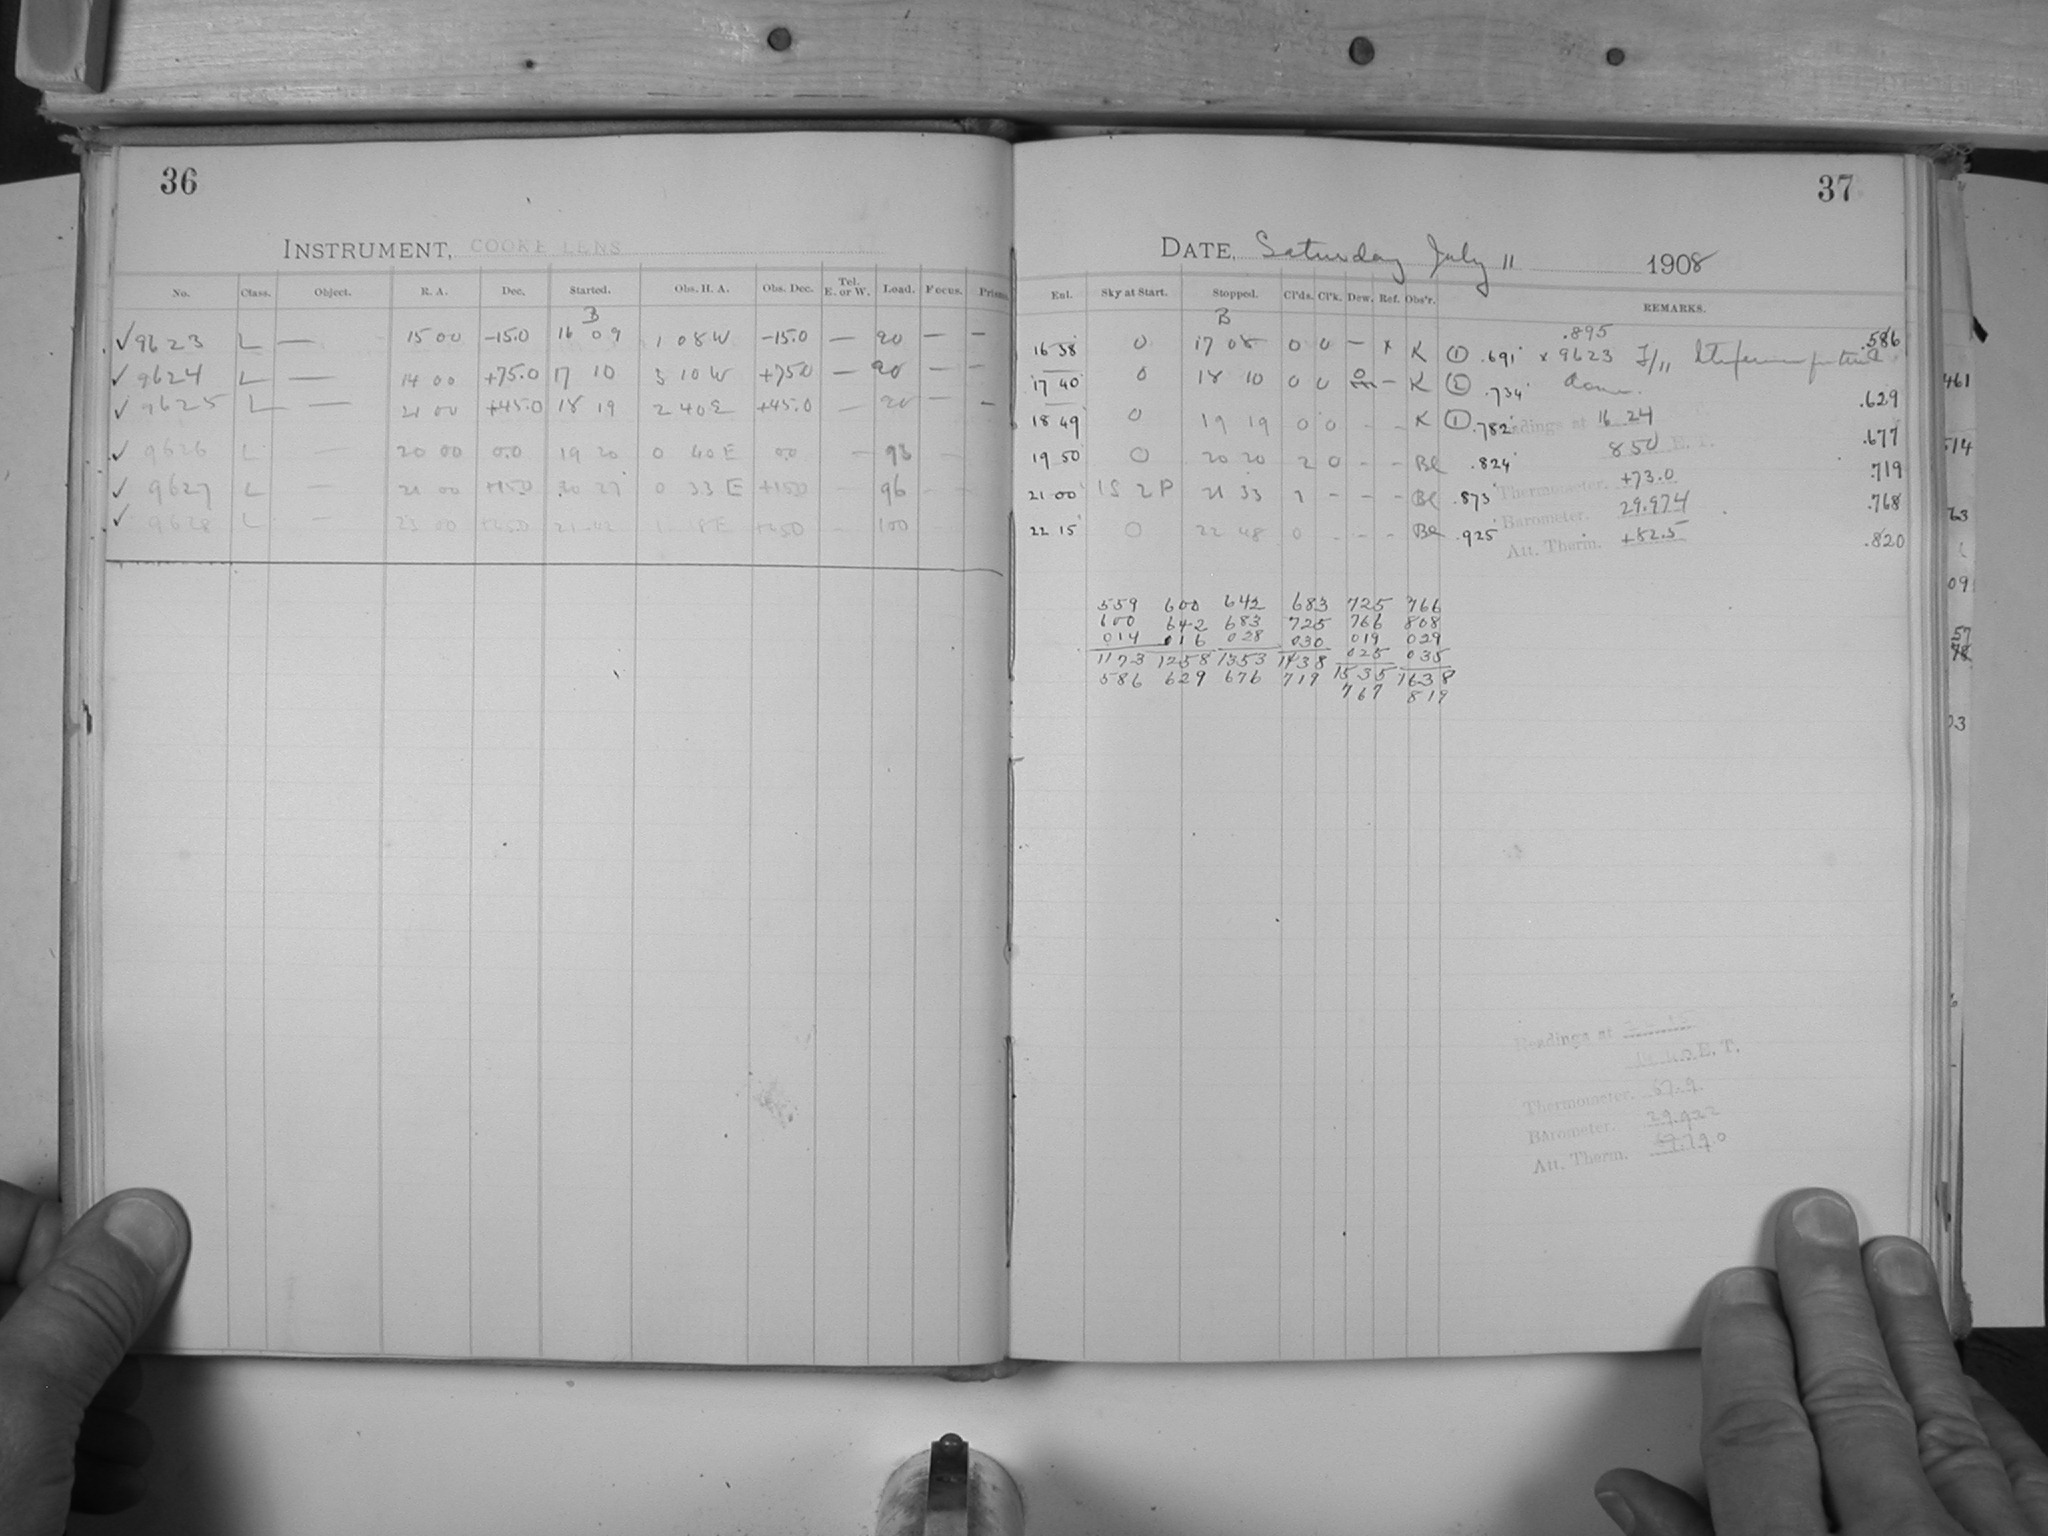 36
INSTRUMENT, COOKE LENS
No. Class. Object. R. A. Dec. Started. Obs. H. A. Obs. Dec. Tel. E. or W. Load. Focus. Prisms.
B
✓ 9623 L — 15 00 -15.0 16 09 1 08 W -15.0 — 90 — —
✓ 9624 L — 14 00 +75.0 17 10 3 10 W +75.0 — 90 — —
✓ 9625 L — 21 00 +45.0 18 19 2 40 E +45.0 — 20 — —
✓ 9626 L — 20 00 0.0 19 20 0 40 E 0.0 — 93 —
✓ 9627 L — 21 00 +15.0 20 27 0 33 E +15.0 — 96 - -
✓ 9628 L — 23 00 21 42 1 18 E - 100
37
DATE, Saturday July 11 1908
Ent. Sky at Start. Stopped. Cl'ds. Cl'k. Dew. Ref. Obs'r. REMARKS.
B .895
16 38 0 17 08 0 0 — x K ① .691 x 9623 .586
17 40 0 18 10 0 0 — K .734
18 49 0 19 19 0 0 - - K ① .782 .629
19 50 0 20 20 2 0 - - Be .824 .677
21 00 1S 2P 21 33 1 - - - Be .873 .719
22 15 0 22 48 0 - - - Be .925 .768
.820
Readings at 16 24
850 E. T.
Thermometer. +73.0
Barometer. 29.974
Att. Therm. +82.5
559 600 642 683 725 766
600 642 683 725 766 808
014 016 028 030 019 029
025 035
1173 1258 1353 1438 1535 1638
586 629 676 719 767 819
Readings at
E. T.
Thermometer. 67.9
Barometer. 29.922
Att. Therm.
461
514
63
09
57
03